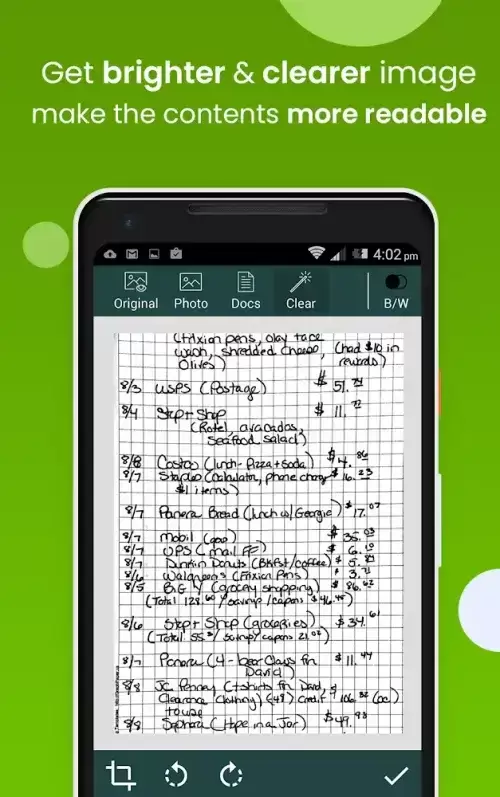 Get brighter & clearer image
make the contents more readable
4:02 pm
Original Photo Docs Clear B/W
(Frixion pens, olay face
wash, shredded cheese, (had $10 in
Olives) rewards)
8/3 USPS (Postage) $ 51.
8/4 Stop + Shop $ 11.
(Rotel, avacados,
seafood salad)
8/8 Costco (lunch - Pizza + Soda) $ 4. 86
8/7 Staples (Calculator, phone charg $ 16. 23
$1 items)
8/7 Panera Bread (lunch w/ Georgie) $ 17. 07
8/7 Mobil (gas) $ 35. 03
8/7 UPS (mail FF) $ 6. 10
8/7 Dunkin Donuts (Bkfst/coffee) $ 5.
8/6 Walgreens (Frixion Pens) $ 3.
8/5 Big Y (Grocery shopping) $ 86. 62
(Total 128. 60 / savings / coupons $ 46.
8/6 Stop + Shop (groceries) $ 34. 61
(Total 55. / savings / coupons 21. 02)
8/7 Panera (4 - bear claws for $ 11. 44
David)
8/8 JC Penney (t-shirts for David, $
Clearance Clothing) (48) credit 106. 32 (cc)
8/8 Sephora (Hope in a Jar) $ 49. 93